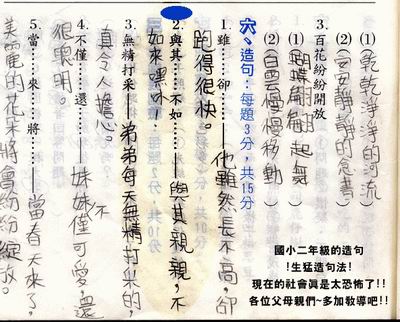 (1) 乾乾淨淨的河流
(2) 安安靜靜的念書
3. 百花紛紛開放
(1) 蝴蝶翩翩起舞
(2) 白雲慢慢移動
六、造句：每題3分，共15分
1. 雖……卻……他雖然長不高，卻
跑得很快。
2. 與其……不如……與其親親，不
如來嘿咻！
3. 無精打采……弟弟每天無精打采的，
真令人擔心。
4. 不僅……還……妹妹不僅可愛，還
很聰明。
5. 當……來……將……當春天來了，
美麗的花朵將會紛紛綻放。
國小二年級的造句
!生猛造句法!
現在的社會真是太恐怖了!!
各位父母親們~多加教導吧!!